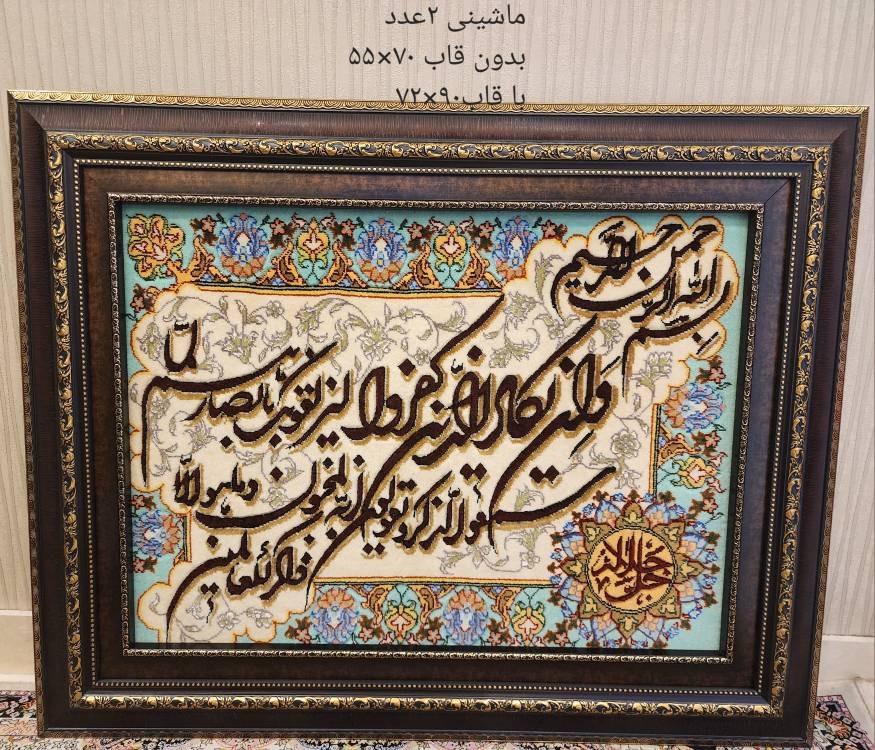 ماشینی ۲عدد
بدون قاب ۷۰×۵۵
با قاب۹۰×۷۲
بسم الله الرحمن الرحیم
وان یکاد الذین کفروا لیزلقونک بابصارهم لما
سمعوا الذکر و یقولون انه لمجنون وما هو الا
ذکر للعالمین
جل جلاله